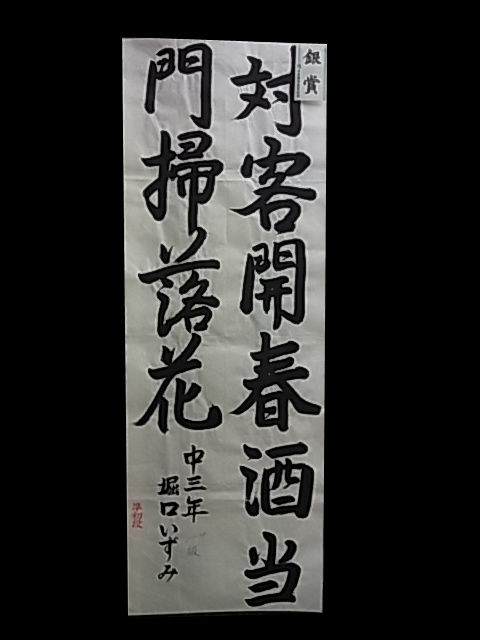 銀賞
対客開春酒当
門掃落花
中三年
堀口いずみ
準初段